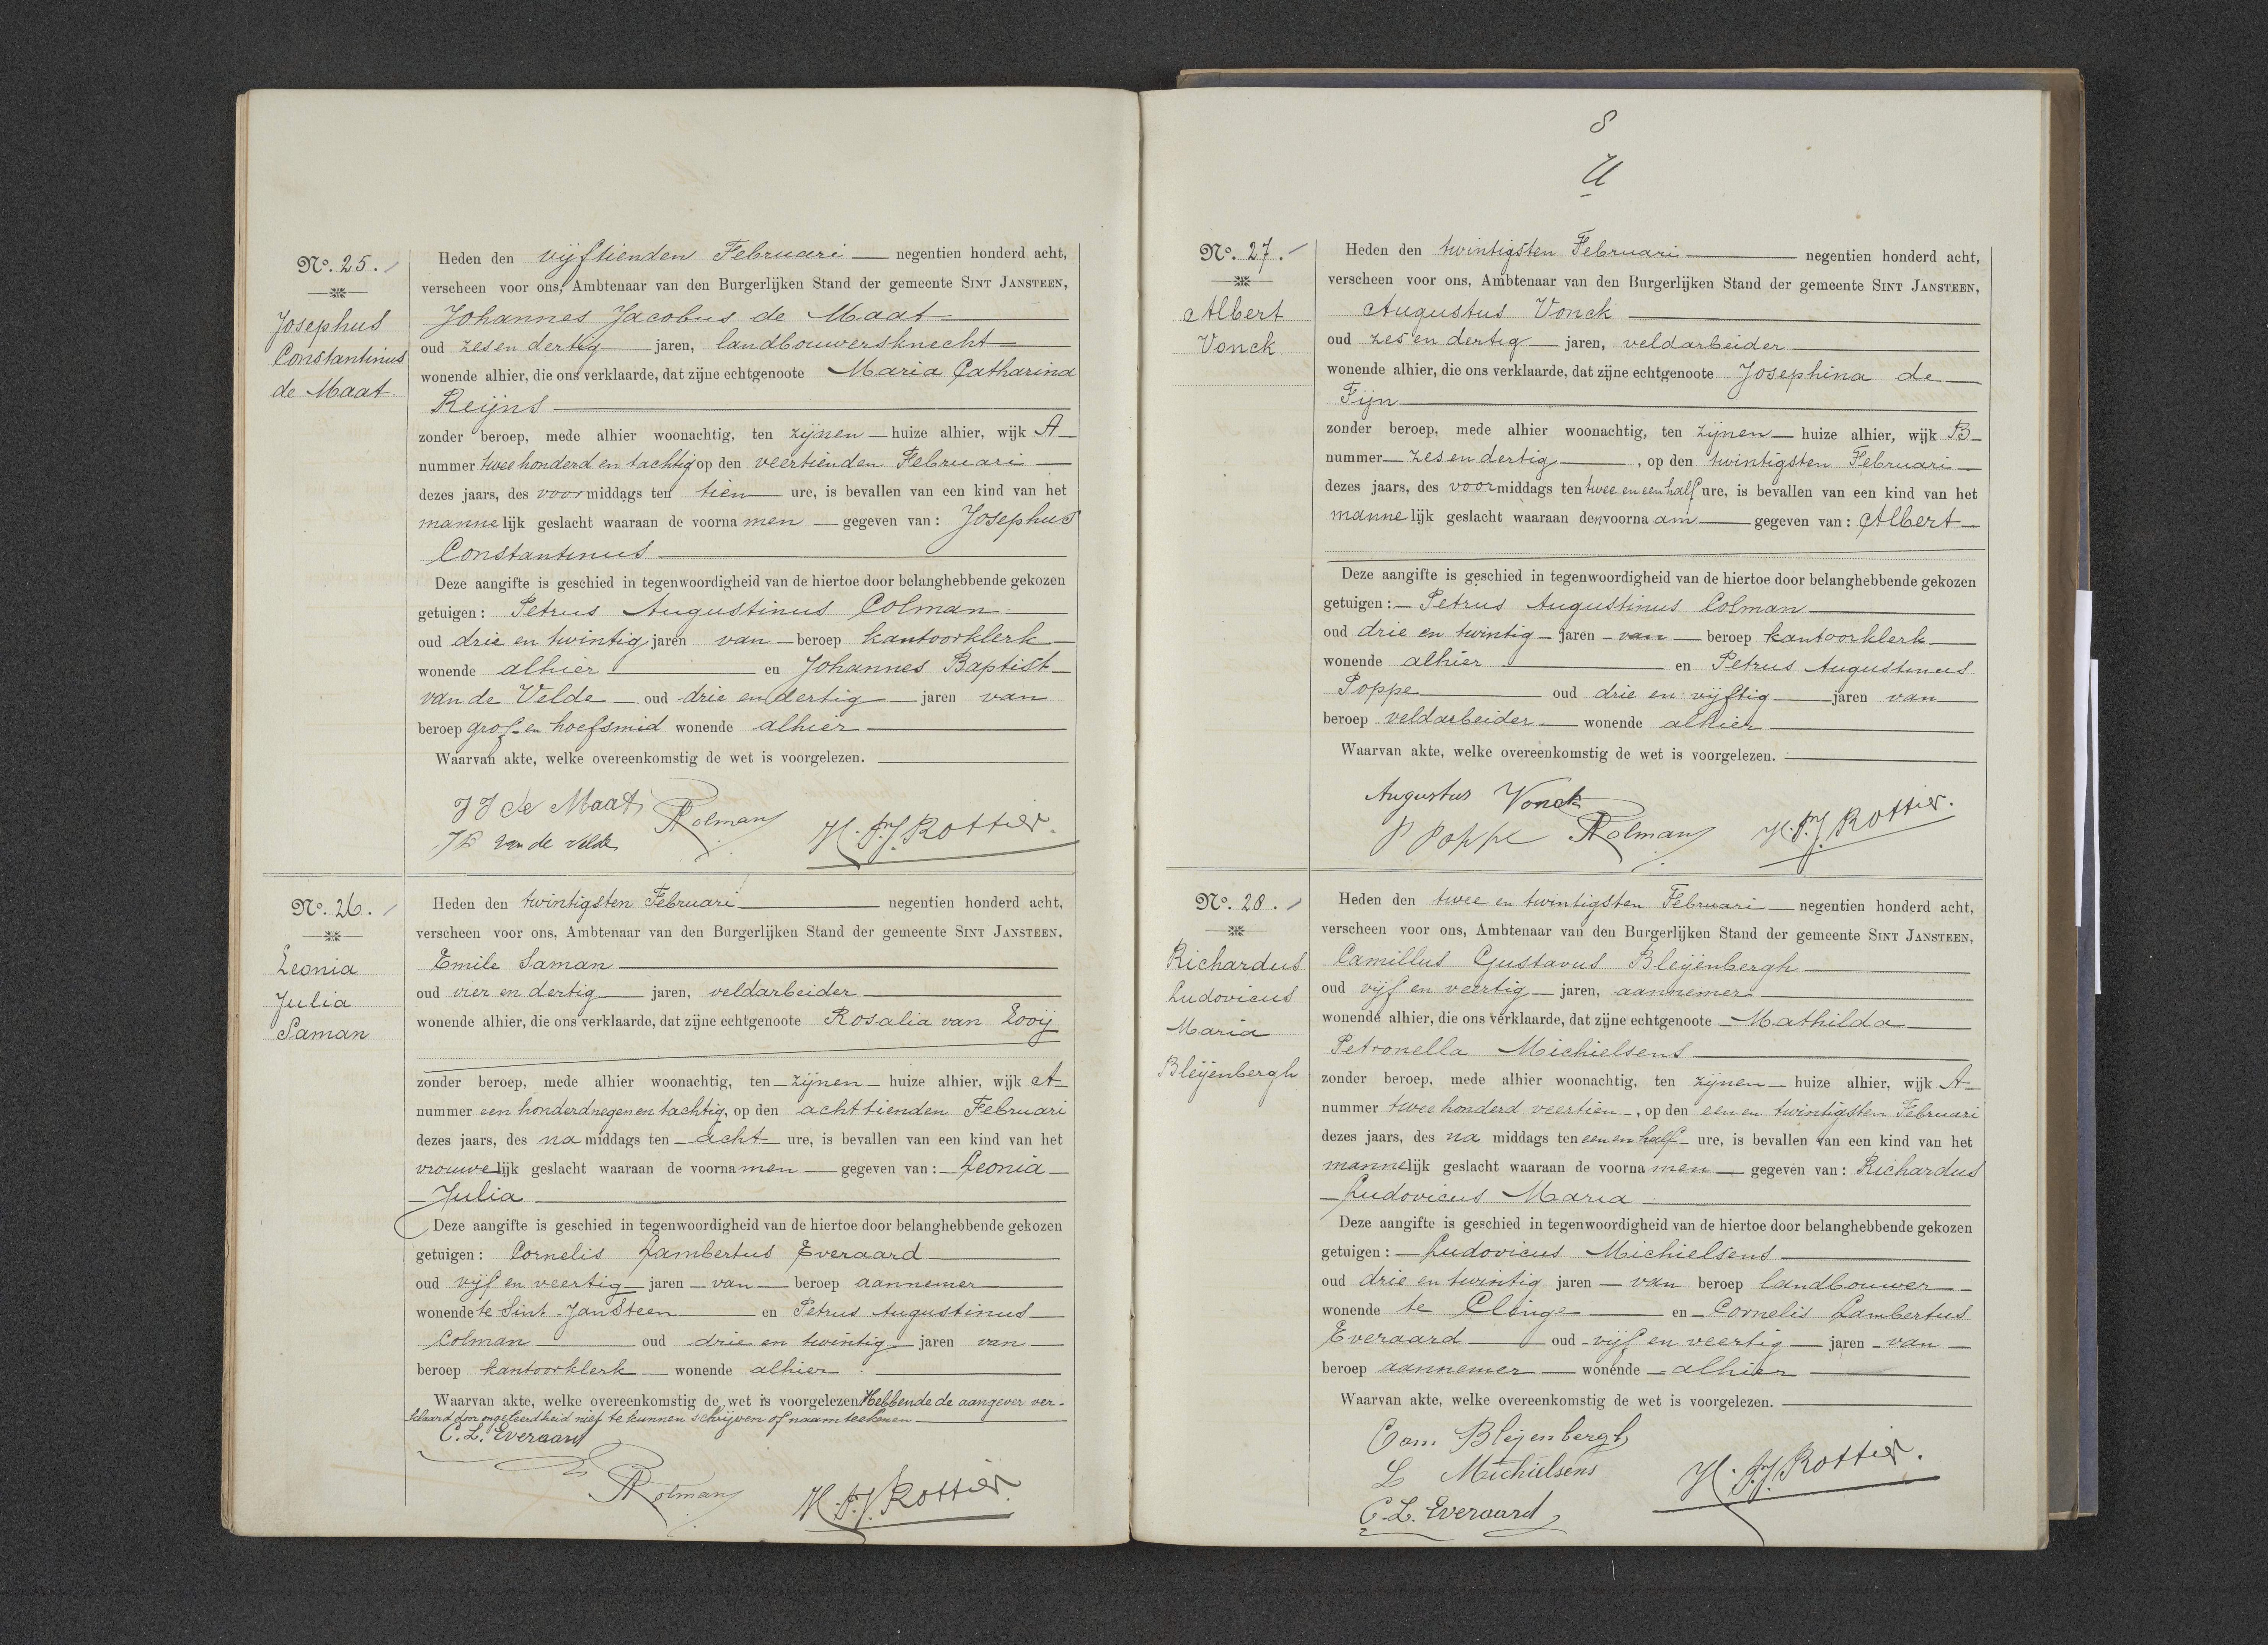 Nº. 25.
Josephus
Constantinus
de Maat.
Heden den vijftienden Februari negentien honderd acht,
verscheen voor ons, Ambtenaar van den Burgerlijken Stand der gemeente SINT JANSTEEN,
Johannes Jacobus de Maat
oud zes en dertig jaren, landbouwersknecht
wonende alhier, die ons verklaarde, dat zijne echtgenoote Maria Catharina
Reijns
zonder beroep, mede alhier woonachtig, ten zijnen huize alhier, wijk A
nummer twee honderd en tachtig op den veertienden Februari
dezes jaars, des voormiddags ten tien ure, is bevallen van een kind van het
mannelijk geslacht waaraan de voornamen gegeven van: Josephus
Constantinus
Deze aangifte is geschied in tegenwoordigheid van de hiertoe door belanghebbende gekozen
getuigen: Petrus Augustinus Colman
oud drie en twintig jaren van beroep kantoorklerk
wonende alhier en Johannes Baptist
van de Velde oud drie en dertig jaren van
beroep grof- en hoefsmid wonende alhier
Waarvan akte, welke overeenkomstig de wet is voorgelezen.
JJ de Maat
PAColman
JB van de Velde
H.F.J. Rottier.
Nº. 26.
Leonia
Julia
Saman
Heden den twintigsten Februari negentien honderd acht,
verscheen voor ons, Ambtenaar van den Burgerlijken Stand der gemeente SINT JANSTEEN,
Emile Saman
oud vier en dertig jaren, veldarbeider
wonende alhier, die ons verklaarde, dat zijne echtgenoote Rosalia van Looij
zonder beroep, mede alhier woonachtig, ten zijnen huize alhier, wijk A
nummer een honderd negen en tachtig, op den achttienden Februari
dezes jaars, des namiddags ten acht ure, is bevallen van een kind van het
vrouwelijk geslacht waaraan de voornamen gegeven van: Leonia
Julia
Deze aangifte is geschied in tegenwoordigheid van de hiertoe door belanghebbende gekozen
getuigen: Cornelis Lambertus Everaard
oud vijf en veertig jaren van beroep aannemer
wonende te Sint-Jansteen en Petrus Augustinus
Colman oud drie en twintig jaren van
beroep kantoorklerk wonende alhier.
Waarvan akte, welke overeenkomstig de wet is voorgelezen Hebbende de aangever ver-
klaard door ongeleerdheid niet te kunnen schrijven of naamteekenen
C.L. Everaard
PAColman
H.F.J. Rottier.
8
U
Nº. 27.
Albert
Vonck
Heden den twintigsten Februari negentien honderd acht,
verscheen voor ons, Ambtenaar van den Burgerlijken Stand der gemeente SINT JANSTEEN,
Augustus Vonck
oud zes en dertig jaren, veldarbeider
wonende alhier, die ons verklaarde, dat zijne echtgenoote Josephina de
Fijn
zonder beroep, mede alhier woonachtig, ten zijnen huize alhier, wijk B
nummer zes en dertig, op den twintigsten Februari
dezes jaars, des voormiddags ten twee en een half ure, is bevallen van een kind van het
mannelijk geslacht waaraan den voornaam gegeven van: Albert
Deze aangifte is geschied in tegenwoordigheid van de hiertoe door belanghebbende gekozen
getuigen: Petrus Augustinus Colman
oud drie en twintig jaren van beroep kantoorklerk
wonende alhier en Petrus Augustinus
Poppe oud drie en vijftig jaren van
beroep veldarbeider wonende alhier
Waarvan akte, welke overeenkomstig de wet is voorgelezen.
Augustus Vonck
P Poppe PAColman H.F.J. Rottier.
Nº. 28.
Richardus
Ludovicus
Maria
Bleijenbergh
Heden den twee en twintigsten Februari negentien honderd acht,
verscheen voor ons, Ambtenaar van den Burgerlijken Stand der gemeente SINT JANSTEEN,
Camillus Gustavus Bleijenbergh
oud vijf en veertig jaren, aannemer
wonende alhier, die ons verklaarde, dat zijne echtgenoote Mathilda
Petronella Michielsens
zonder beroep, mede alhier woonachtig, ten zijnen huize alhier, wijk A
nummer twee honderd veertien, op den een en twintigsten Februari
dezes jaars, des na middags ten een en half ure, is bevallen van een kind van het
mannelijk geslacht waaraan de voornamen gegeven van: Richardus
Ludovicus Maria
Deze aangifte is geschied in tegenwoordigheid van de hiertoe door belanghebbende gekozen
getuigen: Ludovicus Michielsens
oud drie en twintig jaren van beroep landbouwer
wonende te Clinge en Cornelis Lambertus
Everaard oud vijf en veertig jaren van
beroep aannemer wonende alhier
Waarvan akte, welke overeenkomstig de wet is voorgelezen.
Cam. Bleijenbergh
L Michielsens
H.F.J. Rottier.
C.L. Everaard